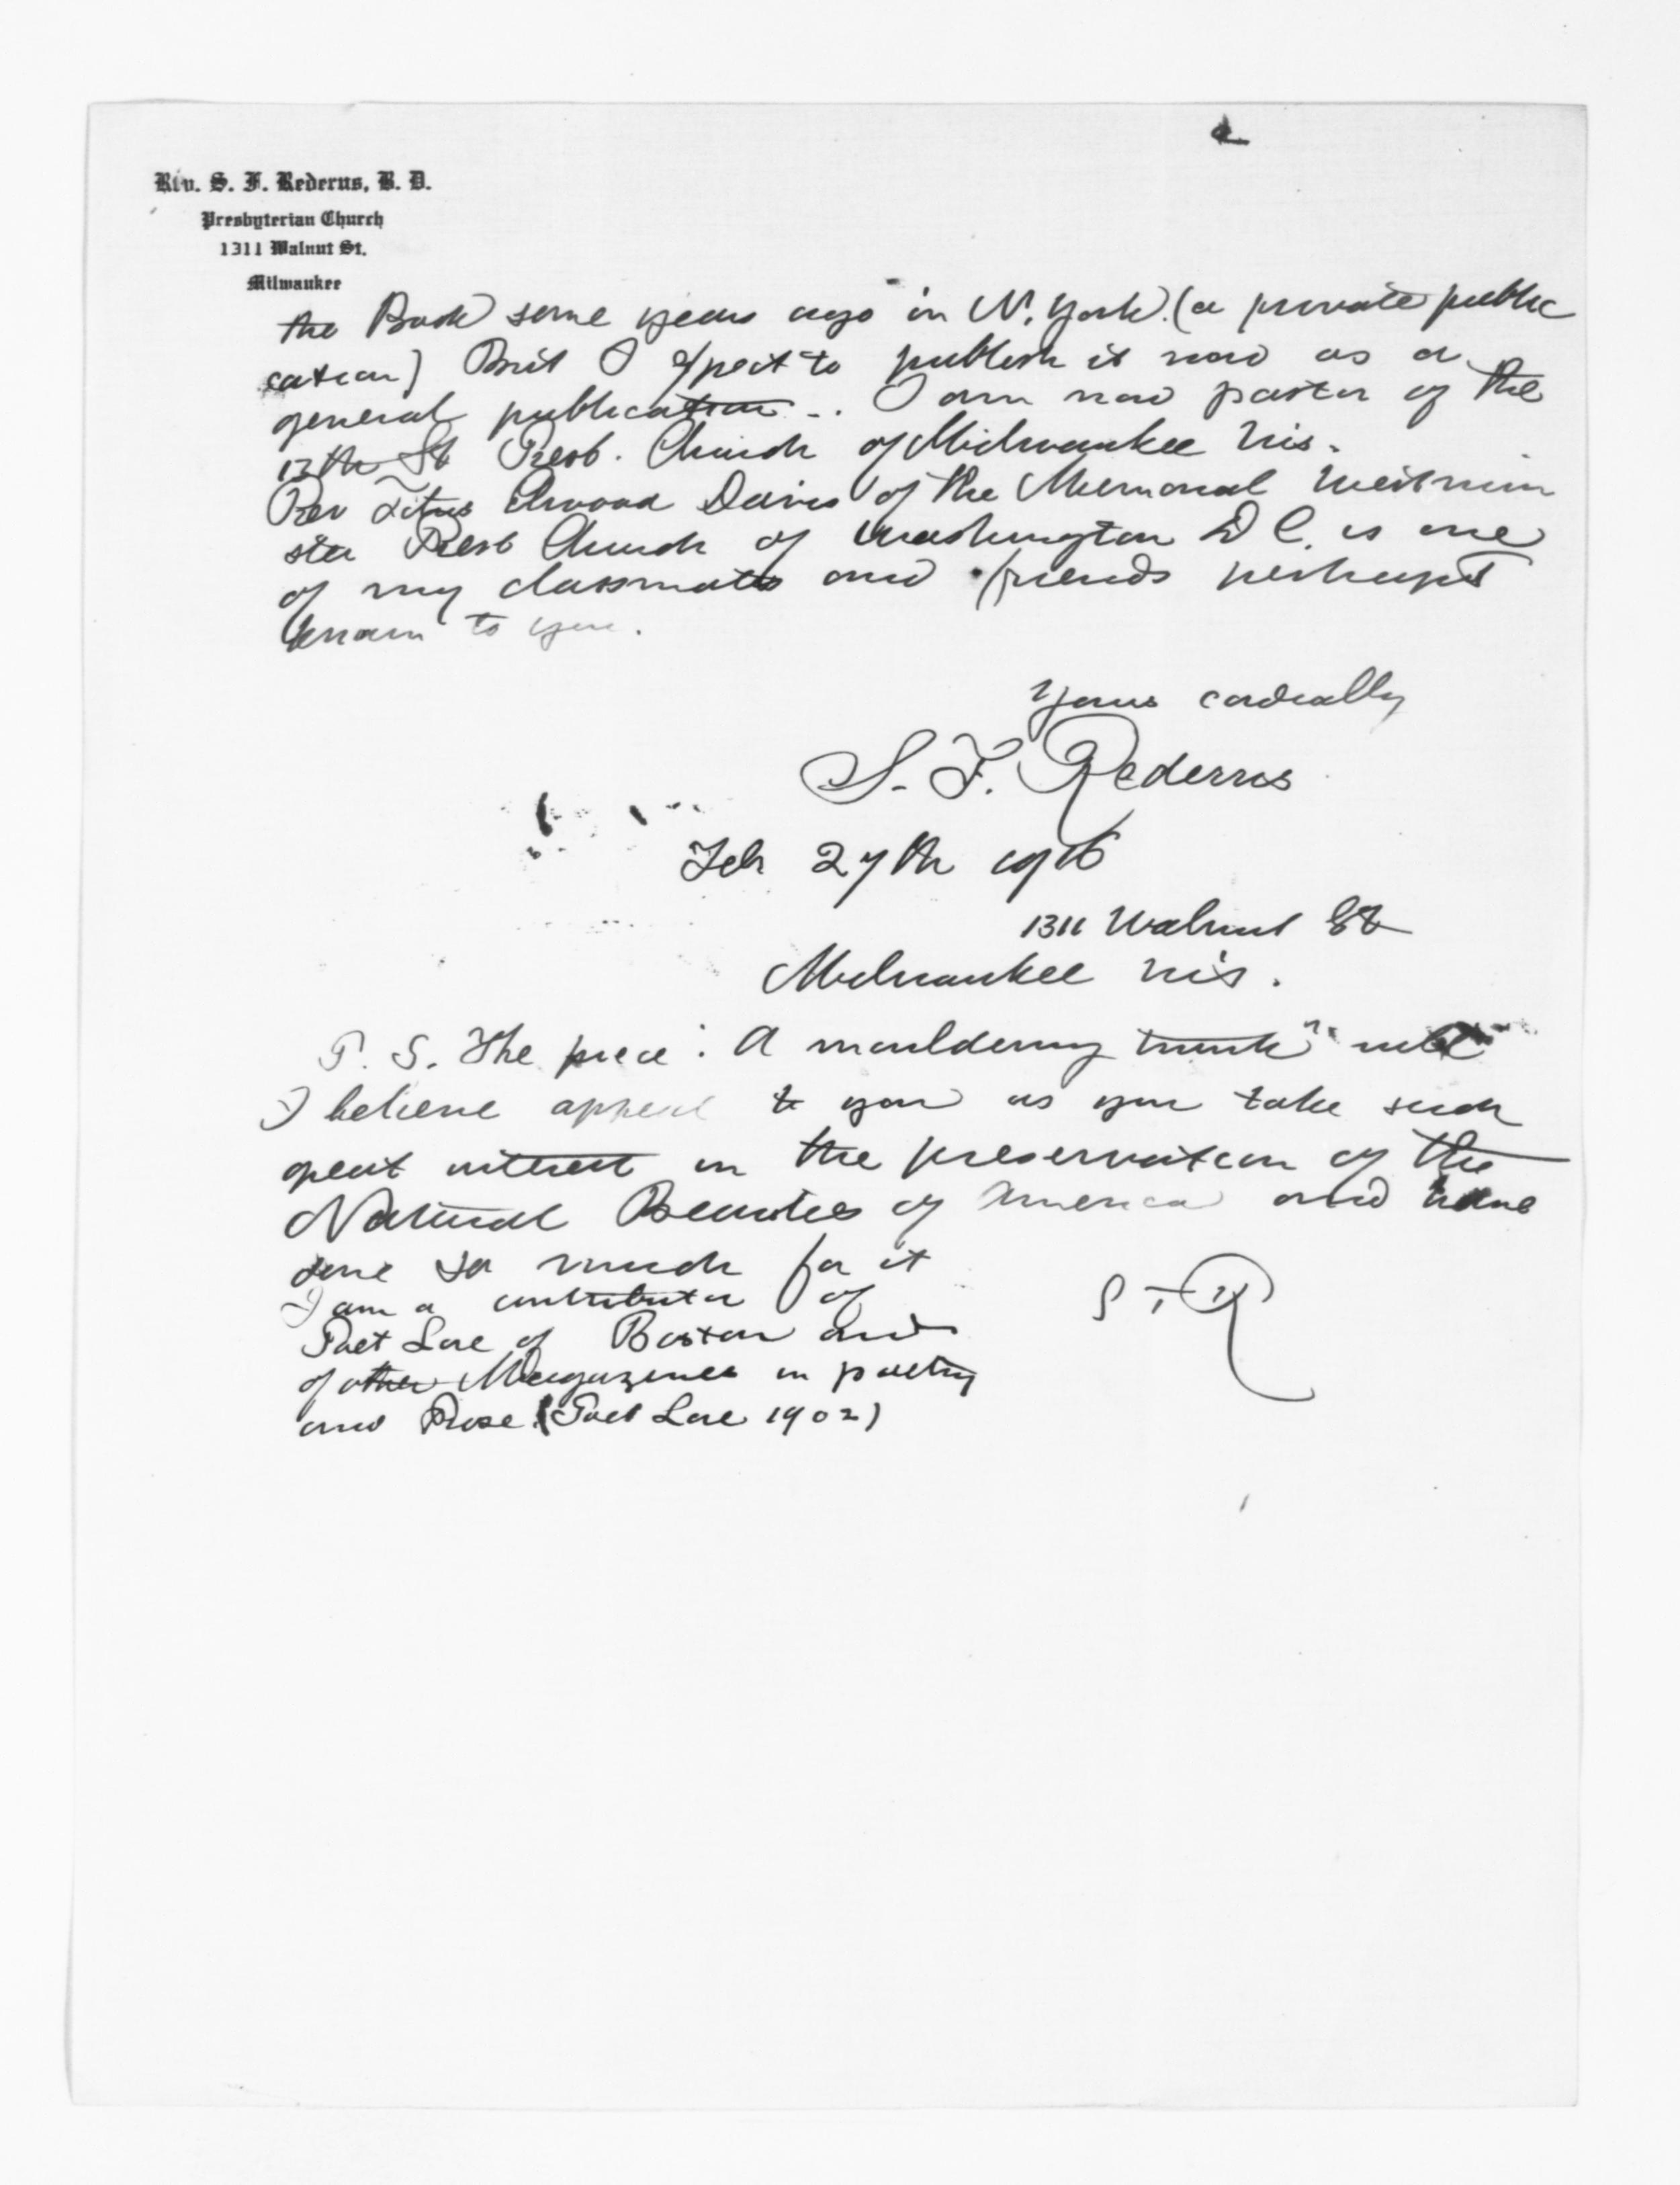 2
Rev. S. F. Rederus, B. D.
Presbyterian Church
1311 Walnut St.
Milwaukee
the Book some years ago in N. York. (a private public
cation) But I expect to publish it now as a
general publication.. I am now pastor of the
13th St Presb. Church of Milwaukee Wis.
Rev Titus Elwood Davis of the Memorial Westmin
ster Presb Church of Washington D C. is one
of my classmates and friends perhaps
known to you.
Yours cordially
S. F. Rederus
Feb 27th 1916
1311 Walnut St
Milwaukee Wis.
P. S. The piece: A mouldering trunk" will
I believe appeal to you as you take such
great interest in the preservation of the
Natural Beauties of America and have
done so much for it
S F R
I am a contributor of
Poet Lore of Boston and
of other Magazines in poetry
and Prose. (Poet Lore 1902)